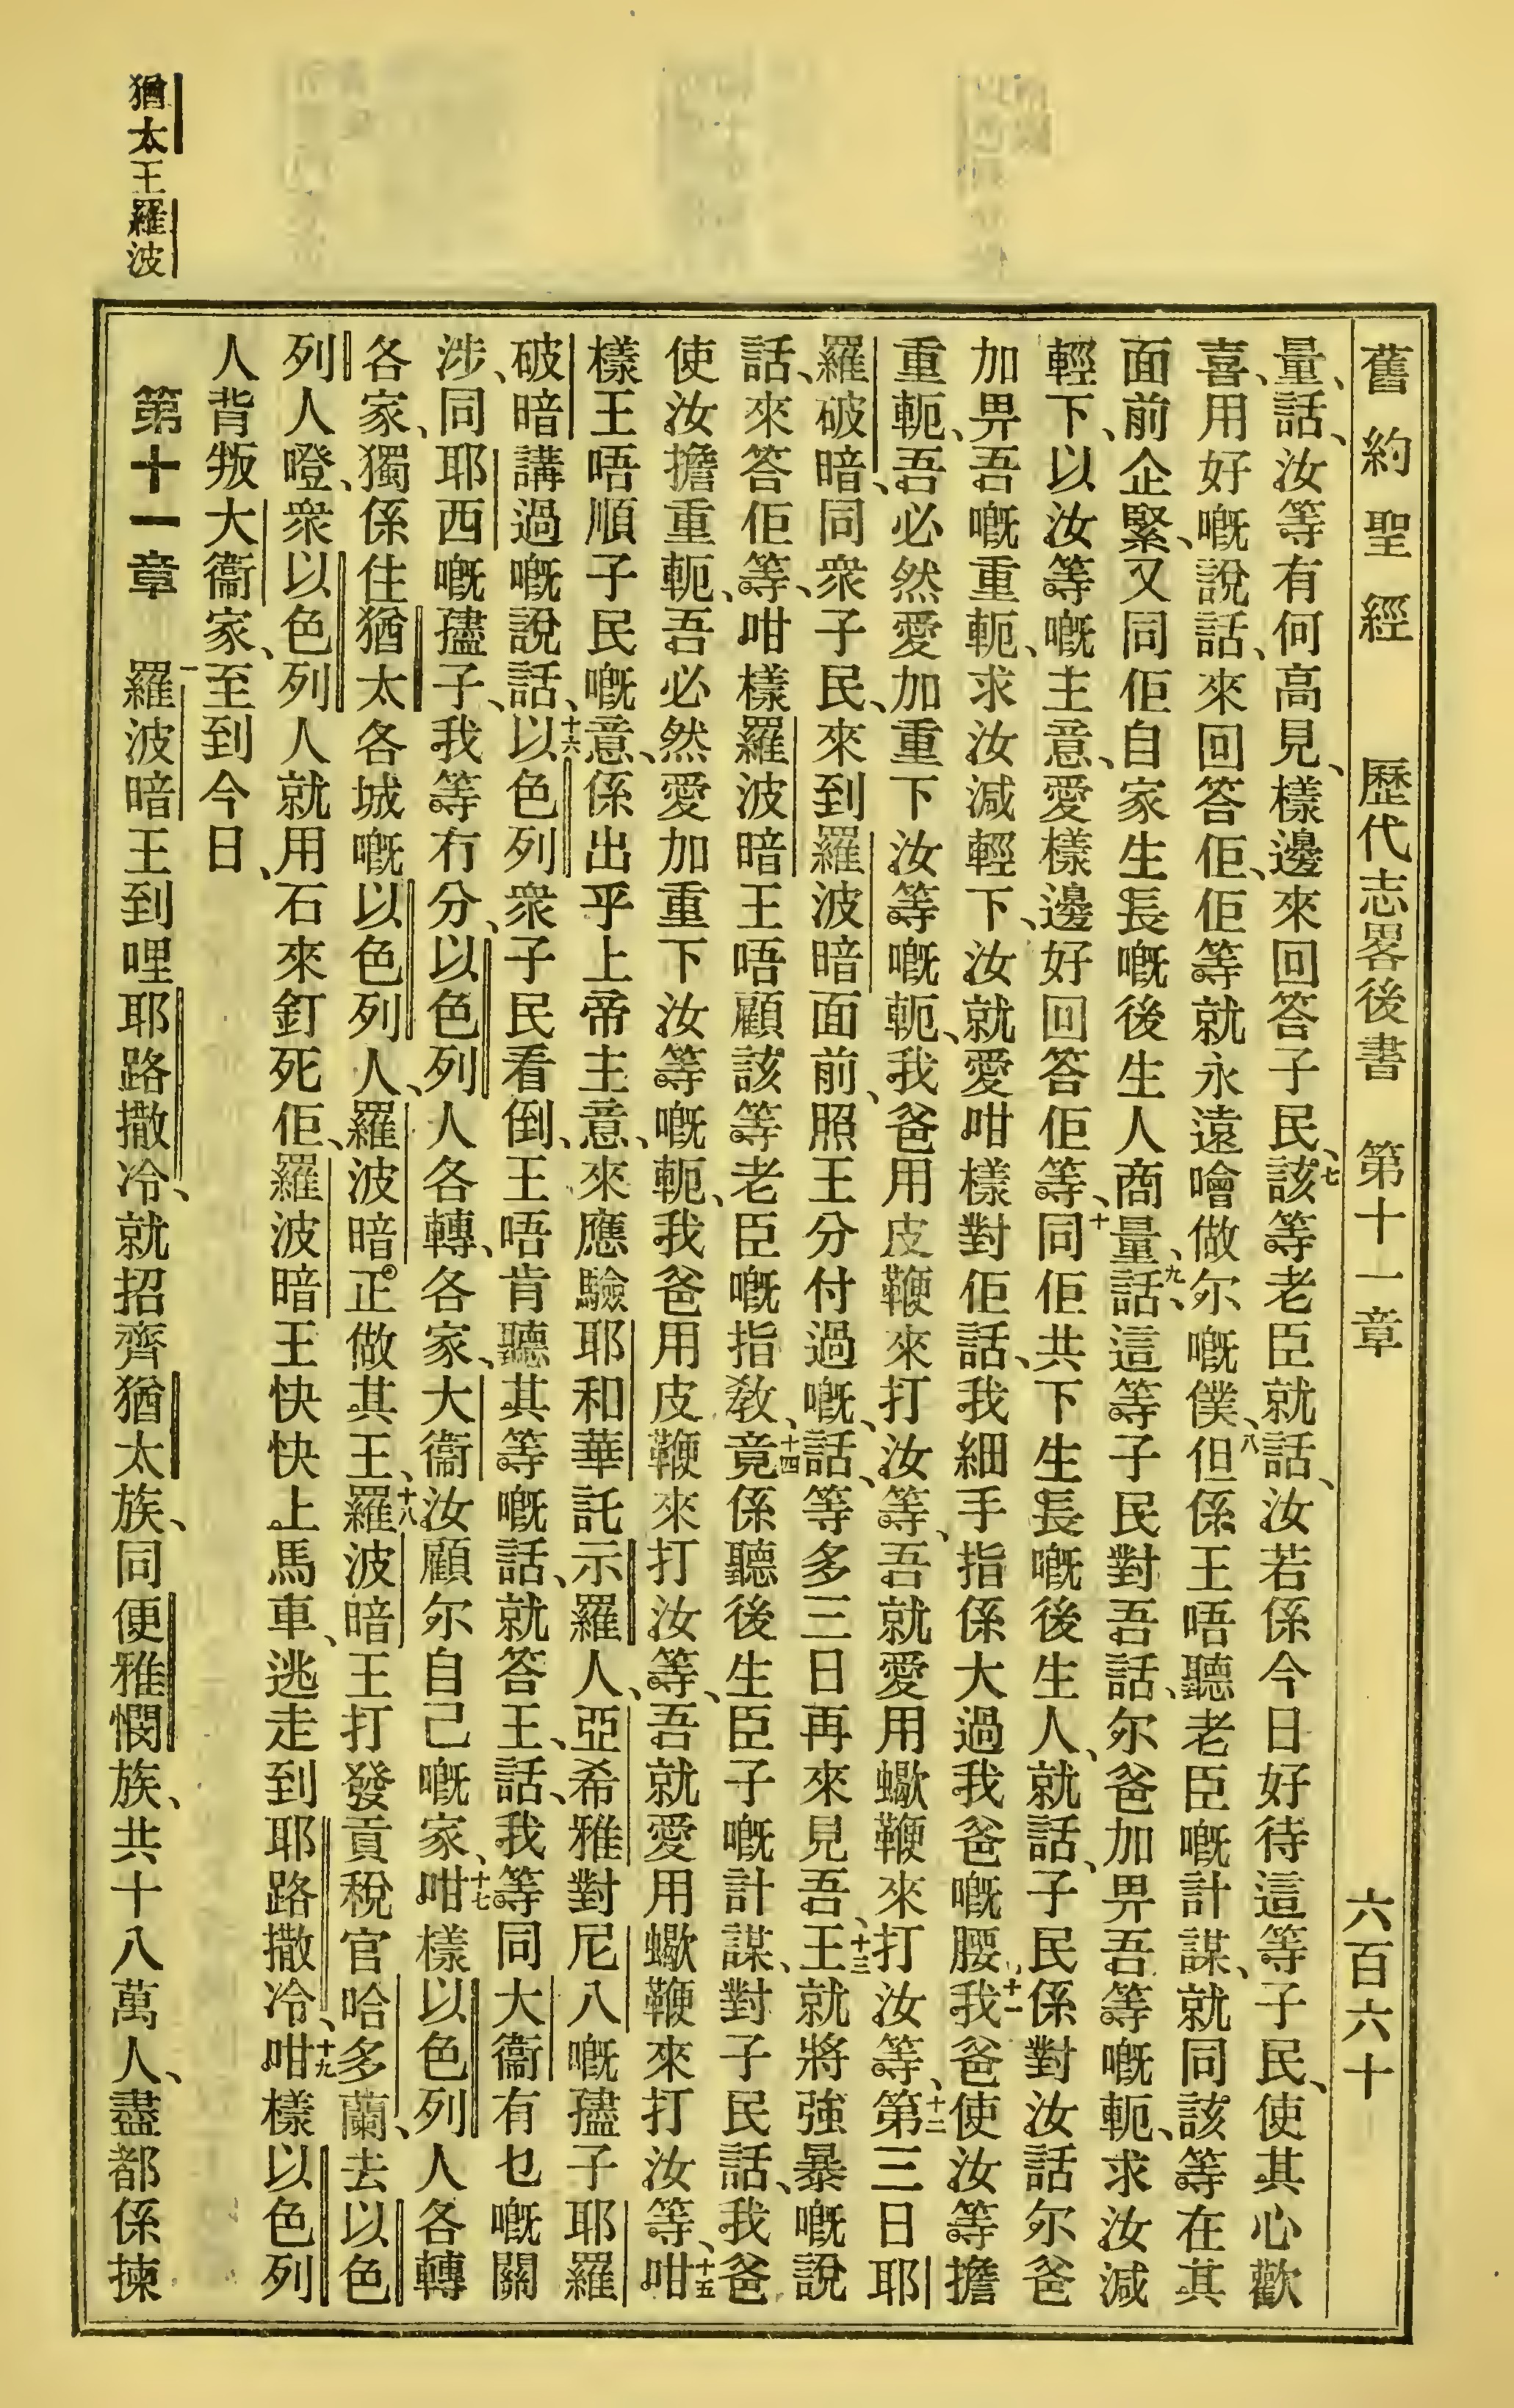 舊約聖經 歷代志畧後書 第十一章 六百六十
量、話、汝等有何高見、樣邊來回答子民、七該等老臣就話、汝若係今日好待這等子民、使其心歡
喜、用好嘅說話、來回答佢、佢等就永遠噲做尔嘅僕、八但係王唔聽老臣嘅計謀、就同該等在其
面前企緊、又同佢自家生長嘅後生人商量、九話、這等子民對吾話、尔爸加畀吾等嘅軛、求汝減
輕下、以汝等嘅主意、愛樣邊好回答佢等、十同佢共下生長嘅後生人、就話、子民係對汝話尔爸
加畀吾嘅重軛、求汝減輕下、汝就愛咁樣對佢話、我細手指係大過我爸嘅腰、十一我爸使汝等擔
重軛、吾必然愛加重下汝等嘅軛、我爸用皮鞭來打汝等、吾就愛用蠍鞭來打汝等、十二第三日耶
羅破暗、同衆子民、來到羅波暗面前、照王分付過嘅、話、等多三日再來見吾、十三王就將強暴嘅說
話、來答佢等、咁樣羅波暗王唔顧該等老臣嘅指教、十四竟係聽後生臣子嘅計謀、對子民話、我爸
使汝擔重軛、吾必然愛加重下汝等嘅軛、我爸用皮鞭來打汝等、吾就愛用蠍鞭來打汝等、十五咁
樣王唔順子民嘅意、係出乎上帝主意、來應驗耶和華託示羅人、亞希雅對尼八嘅孻子耶羅
破暗講過嘅說話、十六以色列衆子民看倒、王唔肯聽其等嘅話、就答王、話、我等同大衞有乜嘅關
涉、同耶西嘅孻子、我等冇分、以色列人各轉、各家、大衞汝顧尔自己嘅家、十七咁樣以色列人各轉
各家、獨係住猶太各城嘅以色列人、羅波暗正做其王、十八羅波暗王打發貢稅官哈多蘭、去以色
列人噔、衆以色列人就用石來釘死佢、羅波暗王快快上馬車、逃走到耶路撒冷、十九咁樣以色列
人背叛大衞家、至到今日、
第十一章 一羅波暗王到哩耶路撒冷、就招齊猶太族、同便雅憫族、共十八萬人、盡都係揀
猶太王羅波